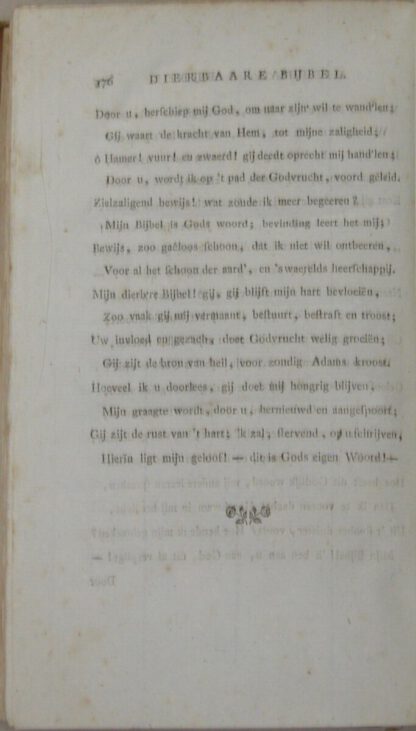 176 DIERBAARE BIJBEL.
Door u, herſchiep mij God, om naar zijn' wil te wand'len;
Gij waart de kracht van Hem, tot mijne zaligheid;
ô Hamer! vuur! en zwaerd! gij deedt oprecht mij hand'len;
Door u, wordt ik op 't pad der Godvrucht, voord geleid.
Zielzaligend bewijs! wat zoude ik meer begeeren?
Mijn Bijbel is Gods woord; bevinding leert het mij;
Bewijs, zoo gaêloos ſchoon, dat ik niet wil ontbeeren,
Voor al het ſchoon der aard', en 's waerelds heerſchappij.
Mijn dierb're Bijbel! gij, gij blijft mijn hart bevloeiën,
Zoo vaak gij mij vermaant, beſtuurt, beſtraft en troost;
Uw invloed en gezach, doet Godvrucht welig groeiën;
Gij zijt de bron van heil, voor zondig Adams kroost.
Hoeveel ik u doorlees, gij doet mij hongrig blijven,
Mijn graagte wordt, door u, hernieuwd en aangeſpoort;
Gij zijt de rust van 't hart; 'k zal, ſtervend, op u ſchrijven,
Hierin ligt mijn geloof! — dit is Gods eigen Woord! —